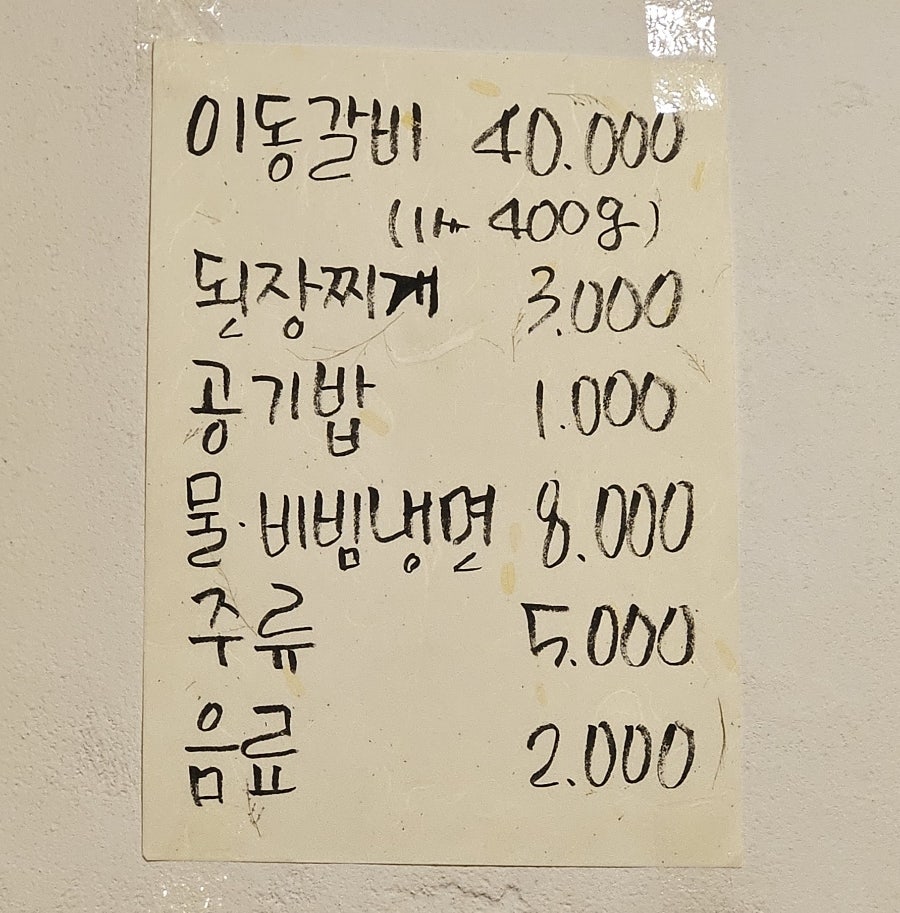 이동갈비 40.000
(1대 400g)
된장찌개 3.000
공기밥 1.000
물·비빔냉면 8.000
주류 5.000
음료 2.000